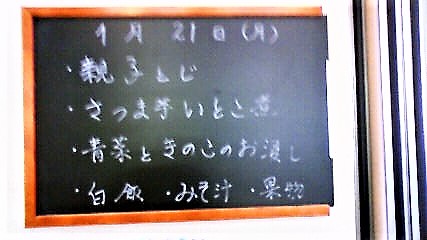 1月21日(月)
・親子とじ
・さつま芋いとこ煮
・青菜ときのこのお浸し
・白飯 ・みそ汁 ・果物